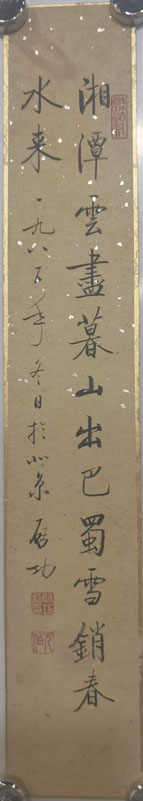 湘潭雲盡暮山出巴蜀雪銷春
水来一九八五年冬日於北京启功